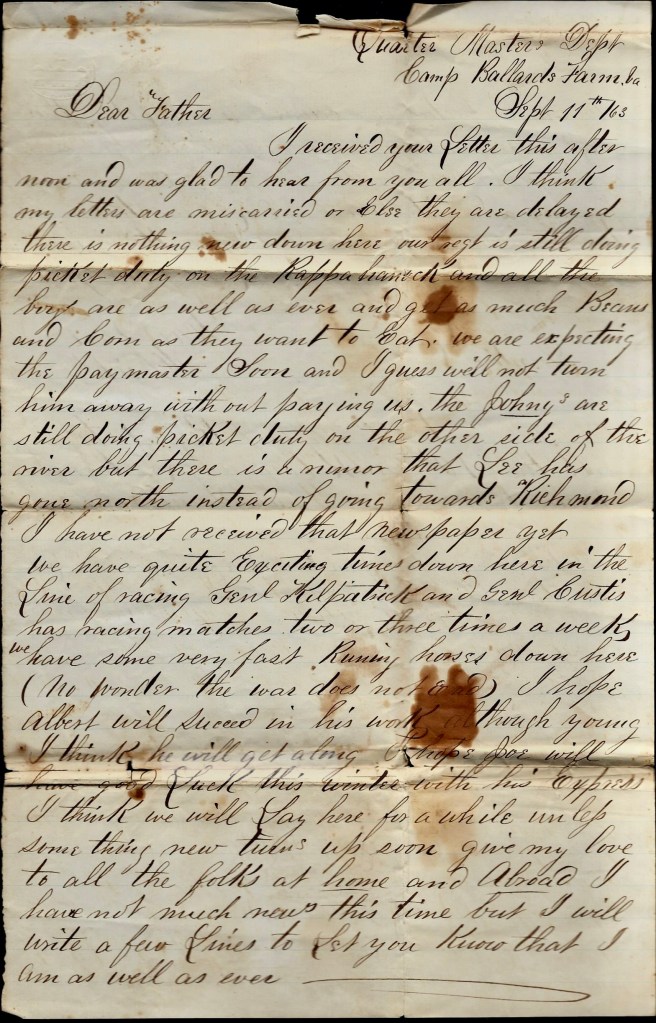 Quarter Masters Dept
Camp Ballards Farm. Va
Sept 11th /63
Dear Father
I received your Letter this after
noon and was glad to hear from you all. I think
my letters are miscarried or Else they are delayed
there is nothing new down here our regt is still doing
picket duty on the Rappahaneck and all the
boys are as well as ever and get as much Beans
and Corn as they want to Eat. we are expecting
the paymaster Soon and I guess we'll not turn
him away without paying us. the Johnys are
still doing picket duty on the other side of the
river but there is a rumor that Lee has
gone north instead of going towards Richmond
I have not received that newspaper yet
we have quite Exciting times down here in the
Line of racing Genl Kilpatrick and Genl Custis
has racing matches two or three times a week,
we have some very fast Runing horses down here
(No wonder the war does not End) I hope
Albert will succed in his work although young
I think he will get along I hope Joe will
have good Luck this winter with his Express
I think we will Lay here for a while unless
some thing new turns up soon give my love
to all the folks at home and Abroad I
have not much news this time but I will
write a few Lines to Let you Know that I
am as well as ever